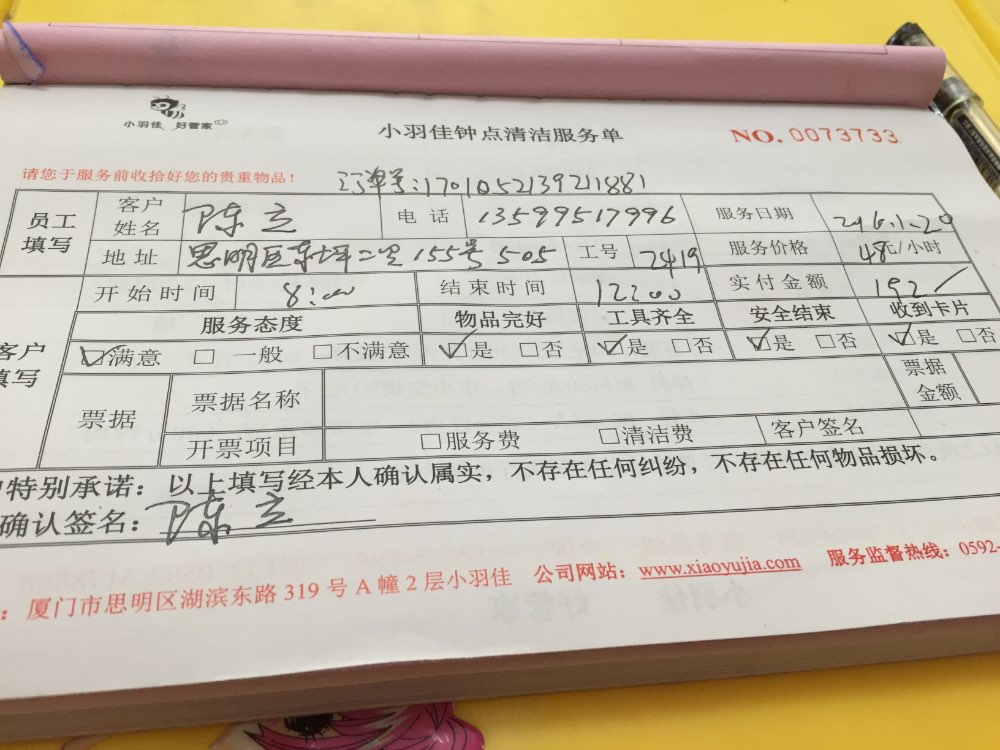 小羽佳 好管家
小羽佳钟点清洁服务单
NO. 0073733
请您于服务前收拾好您的贵重物品！
订单号:1701052139211881
员工填写 客户姓名 陈立 电话 13599517996 服务日期 2016.1.20
地址 思明区东坪二里155号505 工号 2419 服务价格 48元/小时
开始时间 8:00 结束时间 12:00 实付金额 192
客户填写 服务态度 物品完好 工具齐全 安全结束 收到卡片
☑满意 □一般 □不满意 ☑是 □否 ☑是 □否 ☑是 □否 ☑是 □否
票据 票据名称 票据金额
开票项目 □服务费 □清洁费 客户签名
特别承诺：以上填写经本人确认属实，不存在任何纠纷，不存在任何物品损坏。
确认签名：陈立
：厦门市思明区湖滨东路319号A幢2层小羽佳 公司网站：www.xiaoyujia.com 服务监督热线：0592-